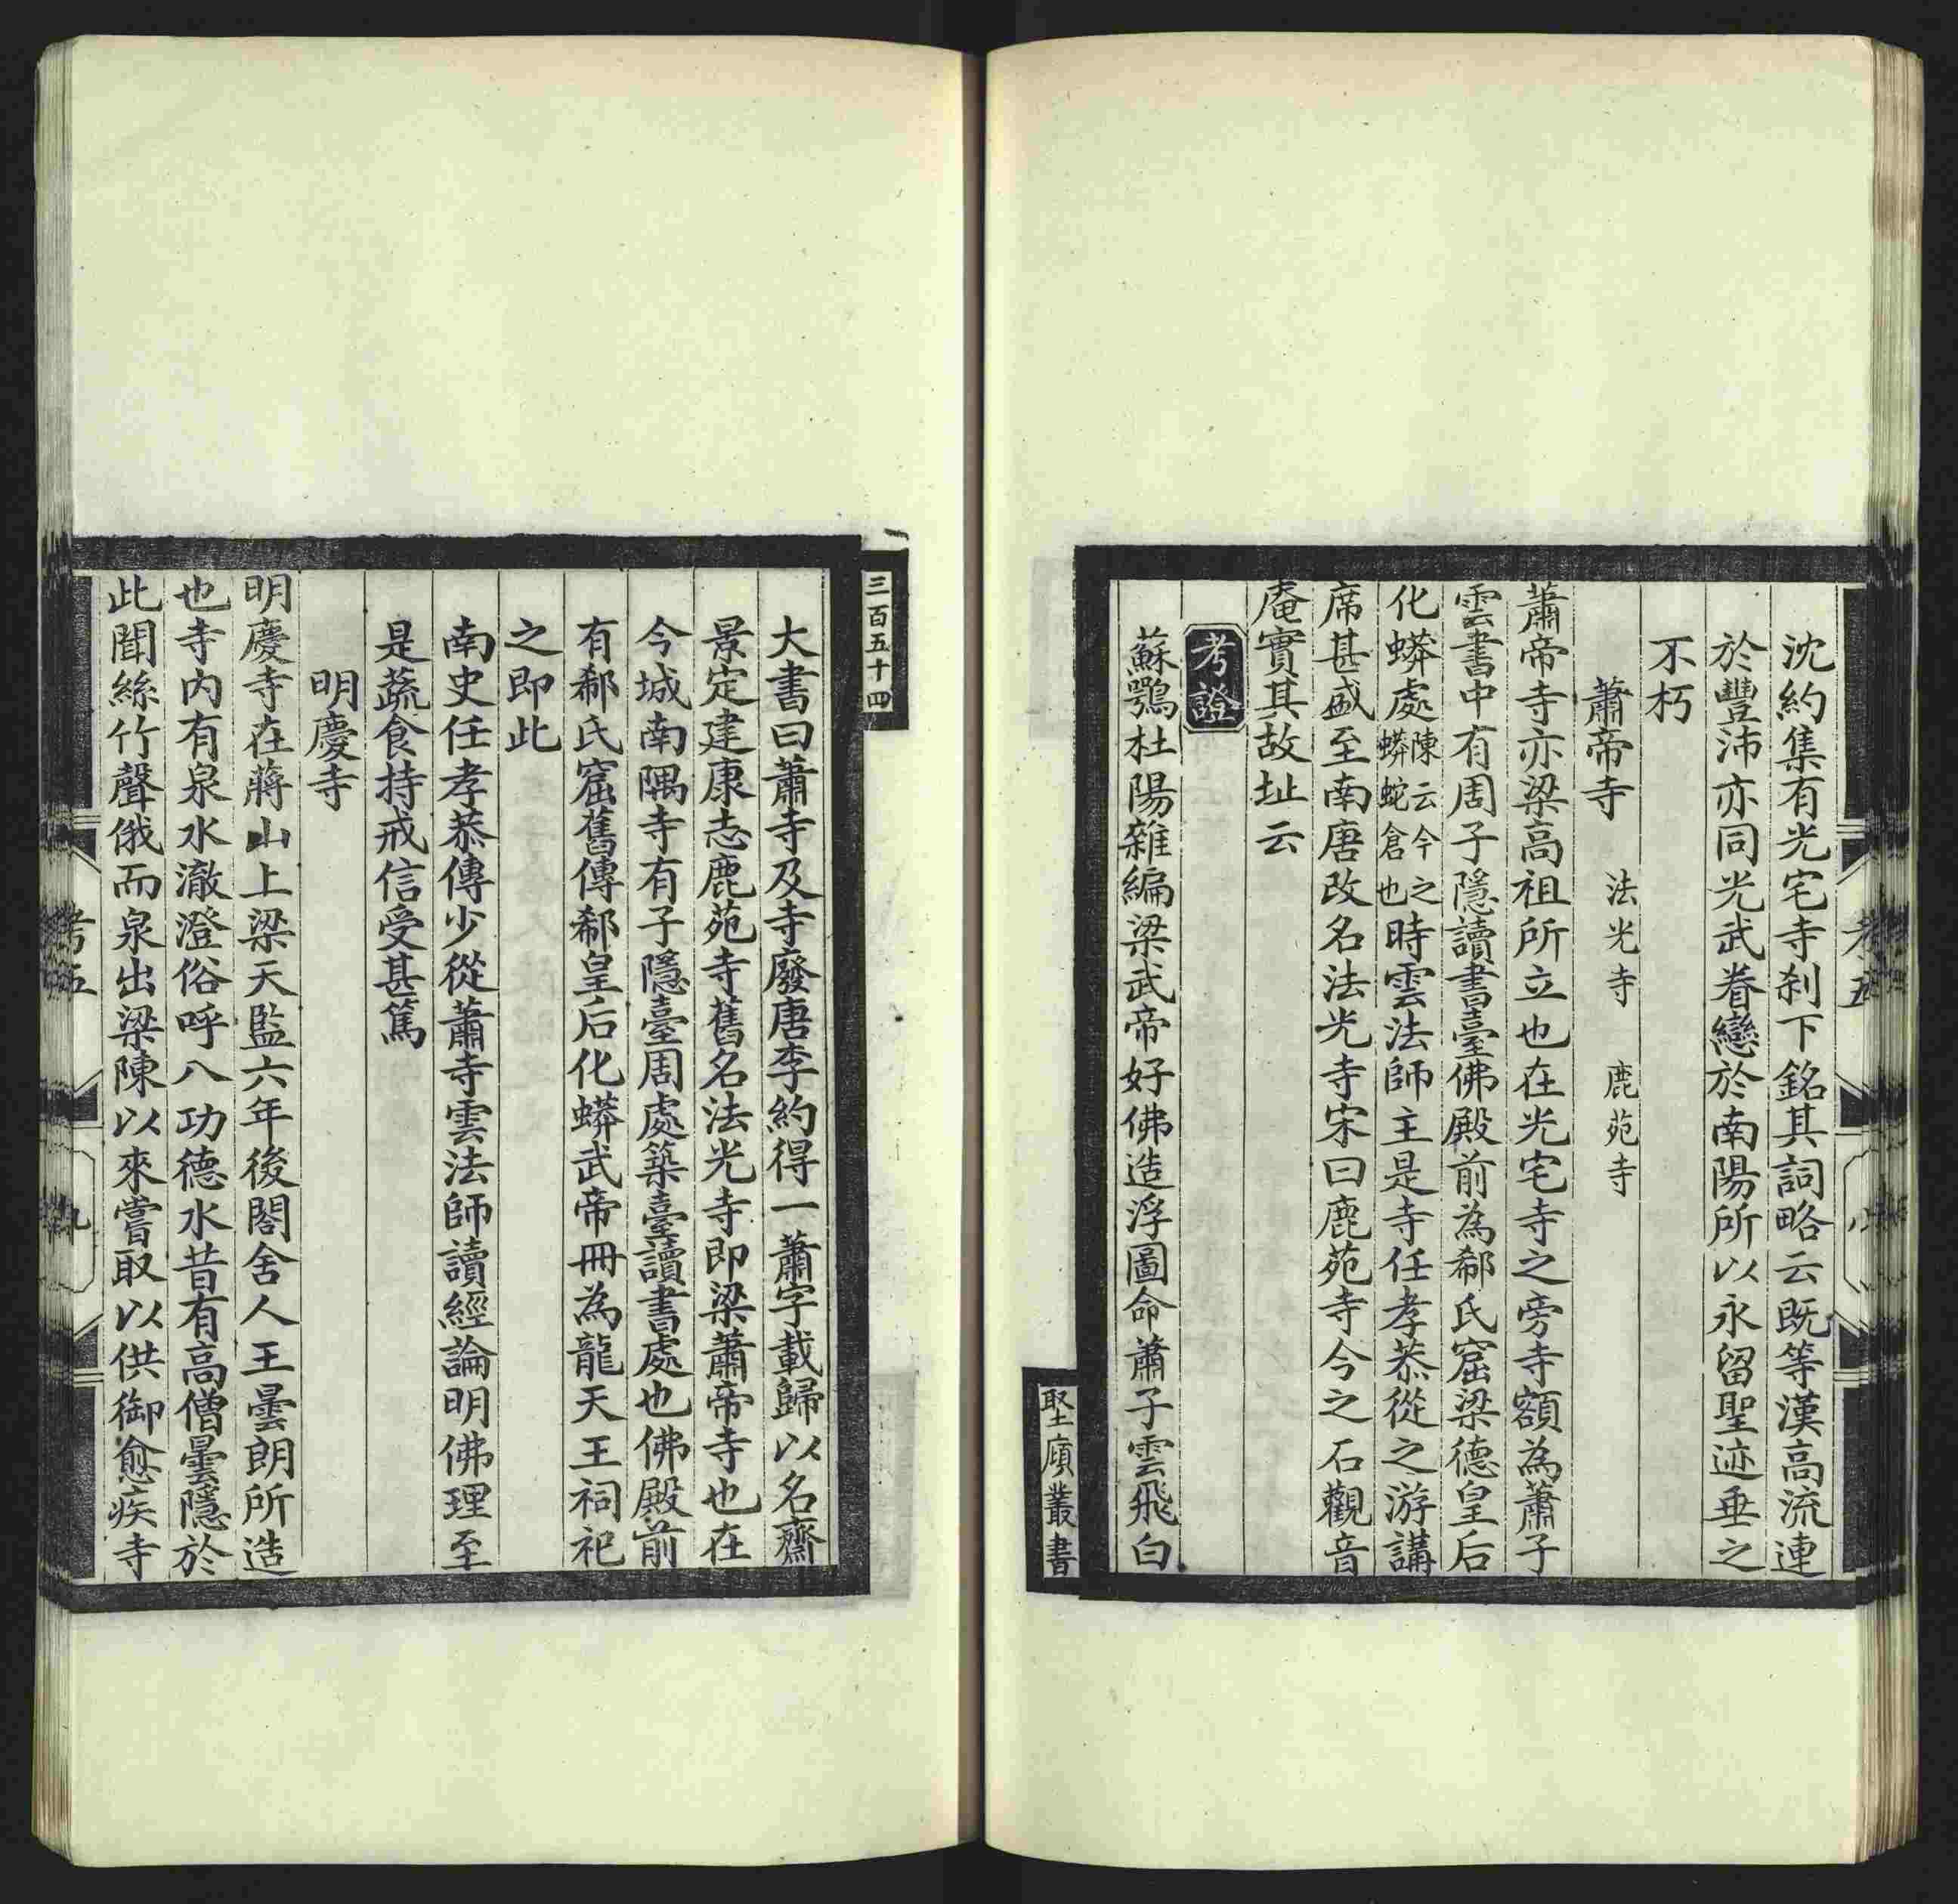 沈約集有光宅寺刹下銘其詞略云既等漢高流連
於豐沛亦同光武眷戀於南陽所以永留聖迹垂之
不朽
蕭帝寺 法光寺 鹿苑寺
蕭帝寺亦梁高祖所立也在光宅寺之旁寺額為蕭子
雲書中有周子隱讀書臺佛殿前為郗氏窟梁德皇后
化蟒處陳云今之蟒蛇倉也時雲法師主是寺任孝恭從之游講
席甚盛至南唐改名法光寺宋曰鹿苑寺今之石觀音
庵實其故址云
考證
蘇鶚杜陽雜編梁武帝好佛造浮圖命蕭子雲飛白
墅廎叢書
三百五十四
大書曰蕭寺及寺廢唐李約得一蕭字載歸以名齋
景定建康志鹿苑寺舊名法光寺即梁蕭帝寺也在
今城南隅寺有子隱臺周處築臺讀書處也佛殿前
有郗氏窟舊傳郗皇后化蟒武帝冊為龍天王祠祀
之即此
南史任孝恭傳少從蕭寺雲法師讀經論明佛理至
是蔬食持戒信受甚篤
明慶寺
明慶寺在蔣山上梁天監六年後閣舍人王曇朗所造
也寺內有泉水澈澄俗呼八功德水昔有高僧曇隱於
此聞絲竹聲俄而泉出梁陳以來嘗取以供御愈疾寺
考五
九